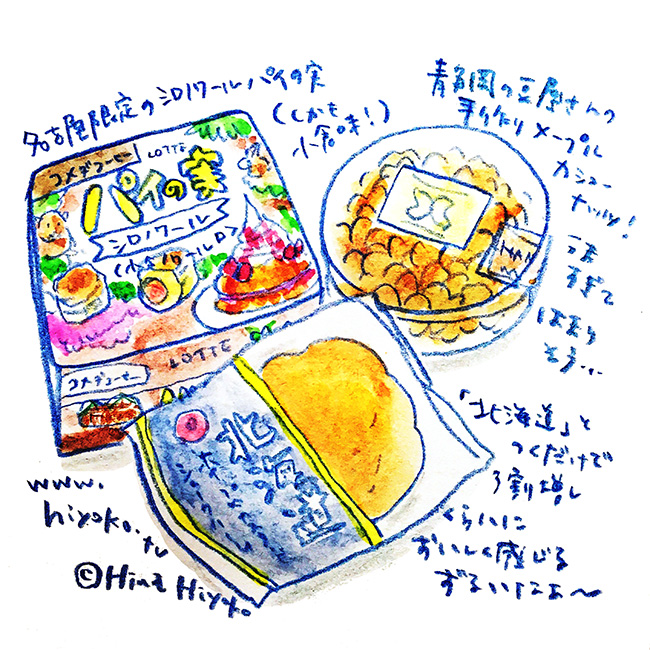 名古屋限定のシロノワールパイの実
(しかも
小倉味!)
青森岡の豆屋さんの
手作りメープル
カシュー
ナッツ!
うま
すぎて
はまり
そう…
コメダコーヒー
LOTTE
パイの実
シロノワール
LOTTE
コメダコーヒー
北海道
「北海道」と
つくだけで
3割増し
くらいに
おいしく感じる
ずるいなあ〜
www.
hiyoko.tv
©Hina Hiyoko